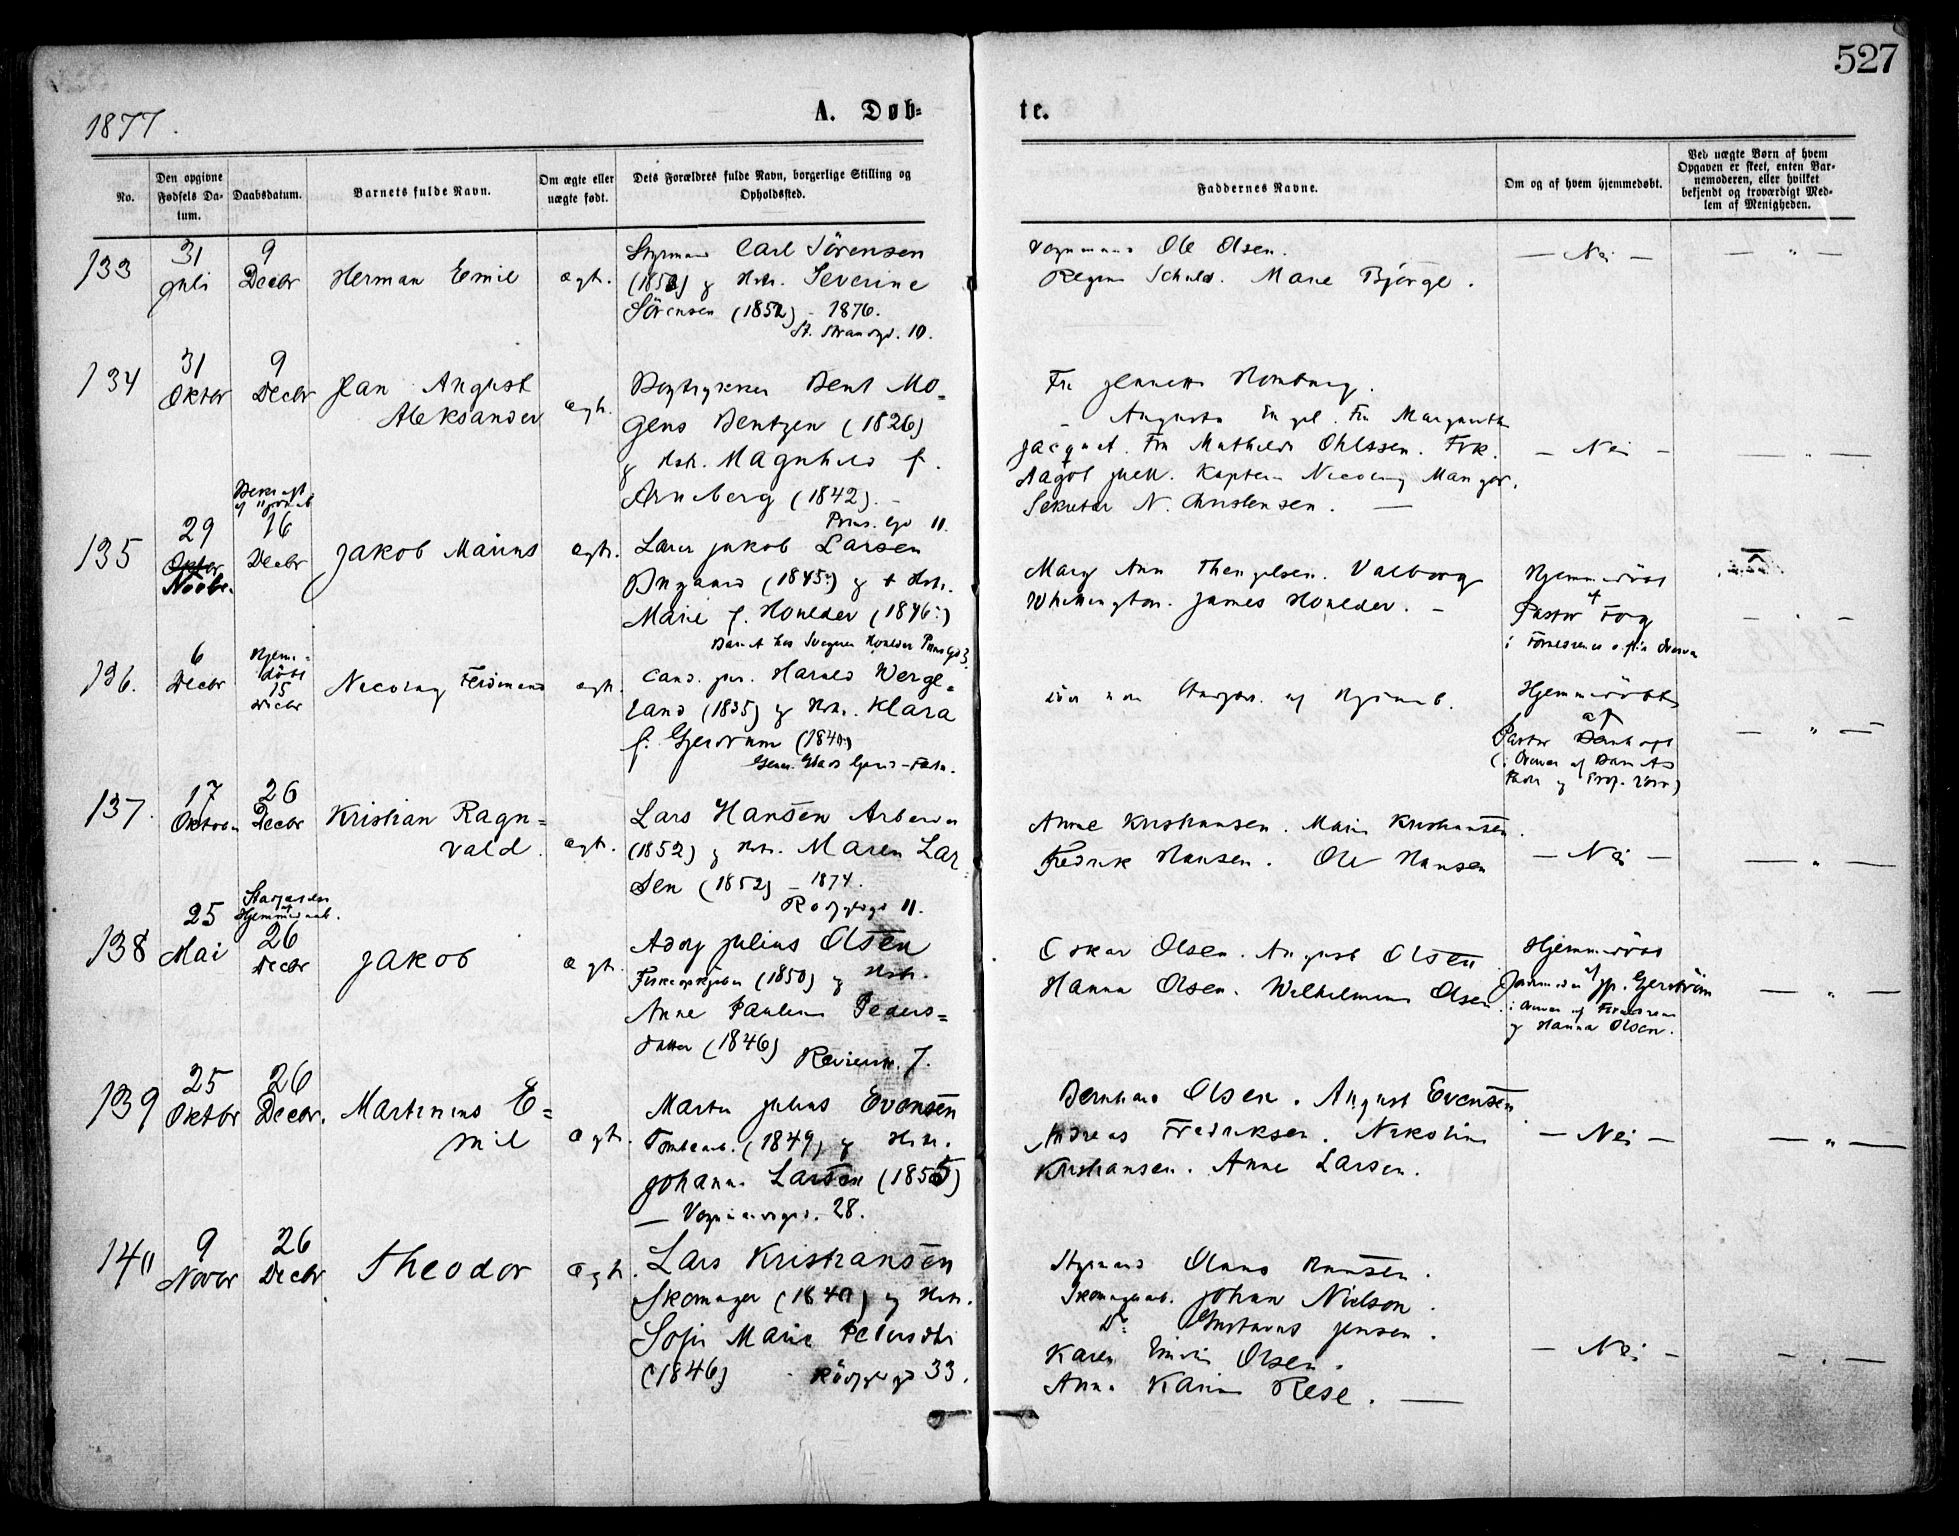 527
1877.
A. Døb-
te.
No.
Den opgivne
Fødsels Da-
tum.
Daabsdatum.
Barnets fulde Navn.
Om ægte eller
uægte født.
Dets Forældres fulde Navn, borgerlige Stilling og
Opholdssted.
Faddernes Navne.
Om og af hvem hjemmedøbt.
Ved uægte Børn af hvem
Opgaven er skeet, enten Bar-
nemoderen, eller hvilket
bekjendt og troværdigt Med-
lem af Menigheden.
133
31
Juli
9
Decbr
Herman Emil
ægt.
Styrmand Carl Sörensen
(1852) og Hstr. Severine
Sörensen (1852) - 1876.
St. Strandgd. 10.
Vognmand Ole Olsen.
Regine Schuld. Marie Björge.
— Nei —
— " —
134
31
Oktbr
9
Decbr
Jean August
Aleksander
ægt.
Bogtrykker Bent Mo-
gens Bentzen (1826)
og Hstr. Magnhild f.
Arneberg (1842). -
Prins. gd 11.
Fru Homburg.
— Augusta Engel. Fru Margrethe
Jacquet. Fru Mathilde Ohlssen. Frk.
Aagot Juell. Kaptein Nicolay Mangor.
Sekretær N. Christensen. —
— Nei —
— " —
135
29
Oktbr
Novbr.
16
Decbr
Jakob Marius
ægt.
Lærer Jakob Larsen
(1845) og + Hstr.
Marie f. Houlder (1846)
Barnet hos Svogeren Houlder Prinsgd 3.
Mary Ann Thengelsen. Valborg
Whittington. James Houlder. -
Hjemmedöbt
af
Pastor
— " —
136.
6
Decbr
Hjem-
döbt
15
Decbr
Nicolay Ferdinand
ægt.
Cand. jur. Harald Werge-
land (1835) og Hstr. Klara
f. Gjerdrum (1840)
af Hjdaab.
Hjemmedöbt
af
Pastor
(i Overvær af Barnets
Fader og Prof.
— " —
137.
17
Oktbr
26
Decbr
Kristian Ragn-
vald.
ægt.
Lars Hansen Arbeider
(1852) og Hstr. Maren Lar
sen (1852) - 1874.
Rödfyldgd 11.
Anne Kristiansen. Marie Kristiansen.
Fredrik Hansen. Ole Hansen
— Nei —
— " —
138
25
Mai
Stadfæstelse
af
Hjemmedaab.
26
Decbr
Jakob
ægt.
Adolf Julius Olsen
Fiskeopkjöber (1850) og Hstr.
Anne Pauline Peders-
datter (1846)
Revierstr. 7.
Oskar Olsen. August Olsen
Hanna Olsen. Wilhelmine Olsen.
Hjemmedöbt
af
Jordmoder Gjerström
i Overvær af Forældrene
og Hanna Olsen.
— " —
139
25
Oktbr
26
Decbr.
Martinius E-
mil
ægt.
Martin Julius Evensen
Tomtearb. (1849) og Hstr.
Johanne Larsen (1855)
— Vognmandsgd. 28.
Bernhard Olsen. August Evensen
Andreas Fredriksen. Nikoline
Kristiansen. Anne Larsen.
— Nei —
— " —
140
9
Novbr
26
Decbr
Theodor
ægt.
Lars Kristiansen
Skomager (1840) og Hstr.
Sofie Marie Petersdtr
(1846)
Rödfyldgd 33.
Styrmand Olaus Hansen.
Skomagerarb. Johan Nielson.
Do Gustavus Jensen.
Karen Emilie Olsen.
Anna Karine Rese. —
— Nei —
— " —